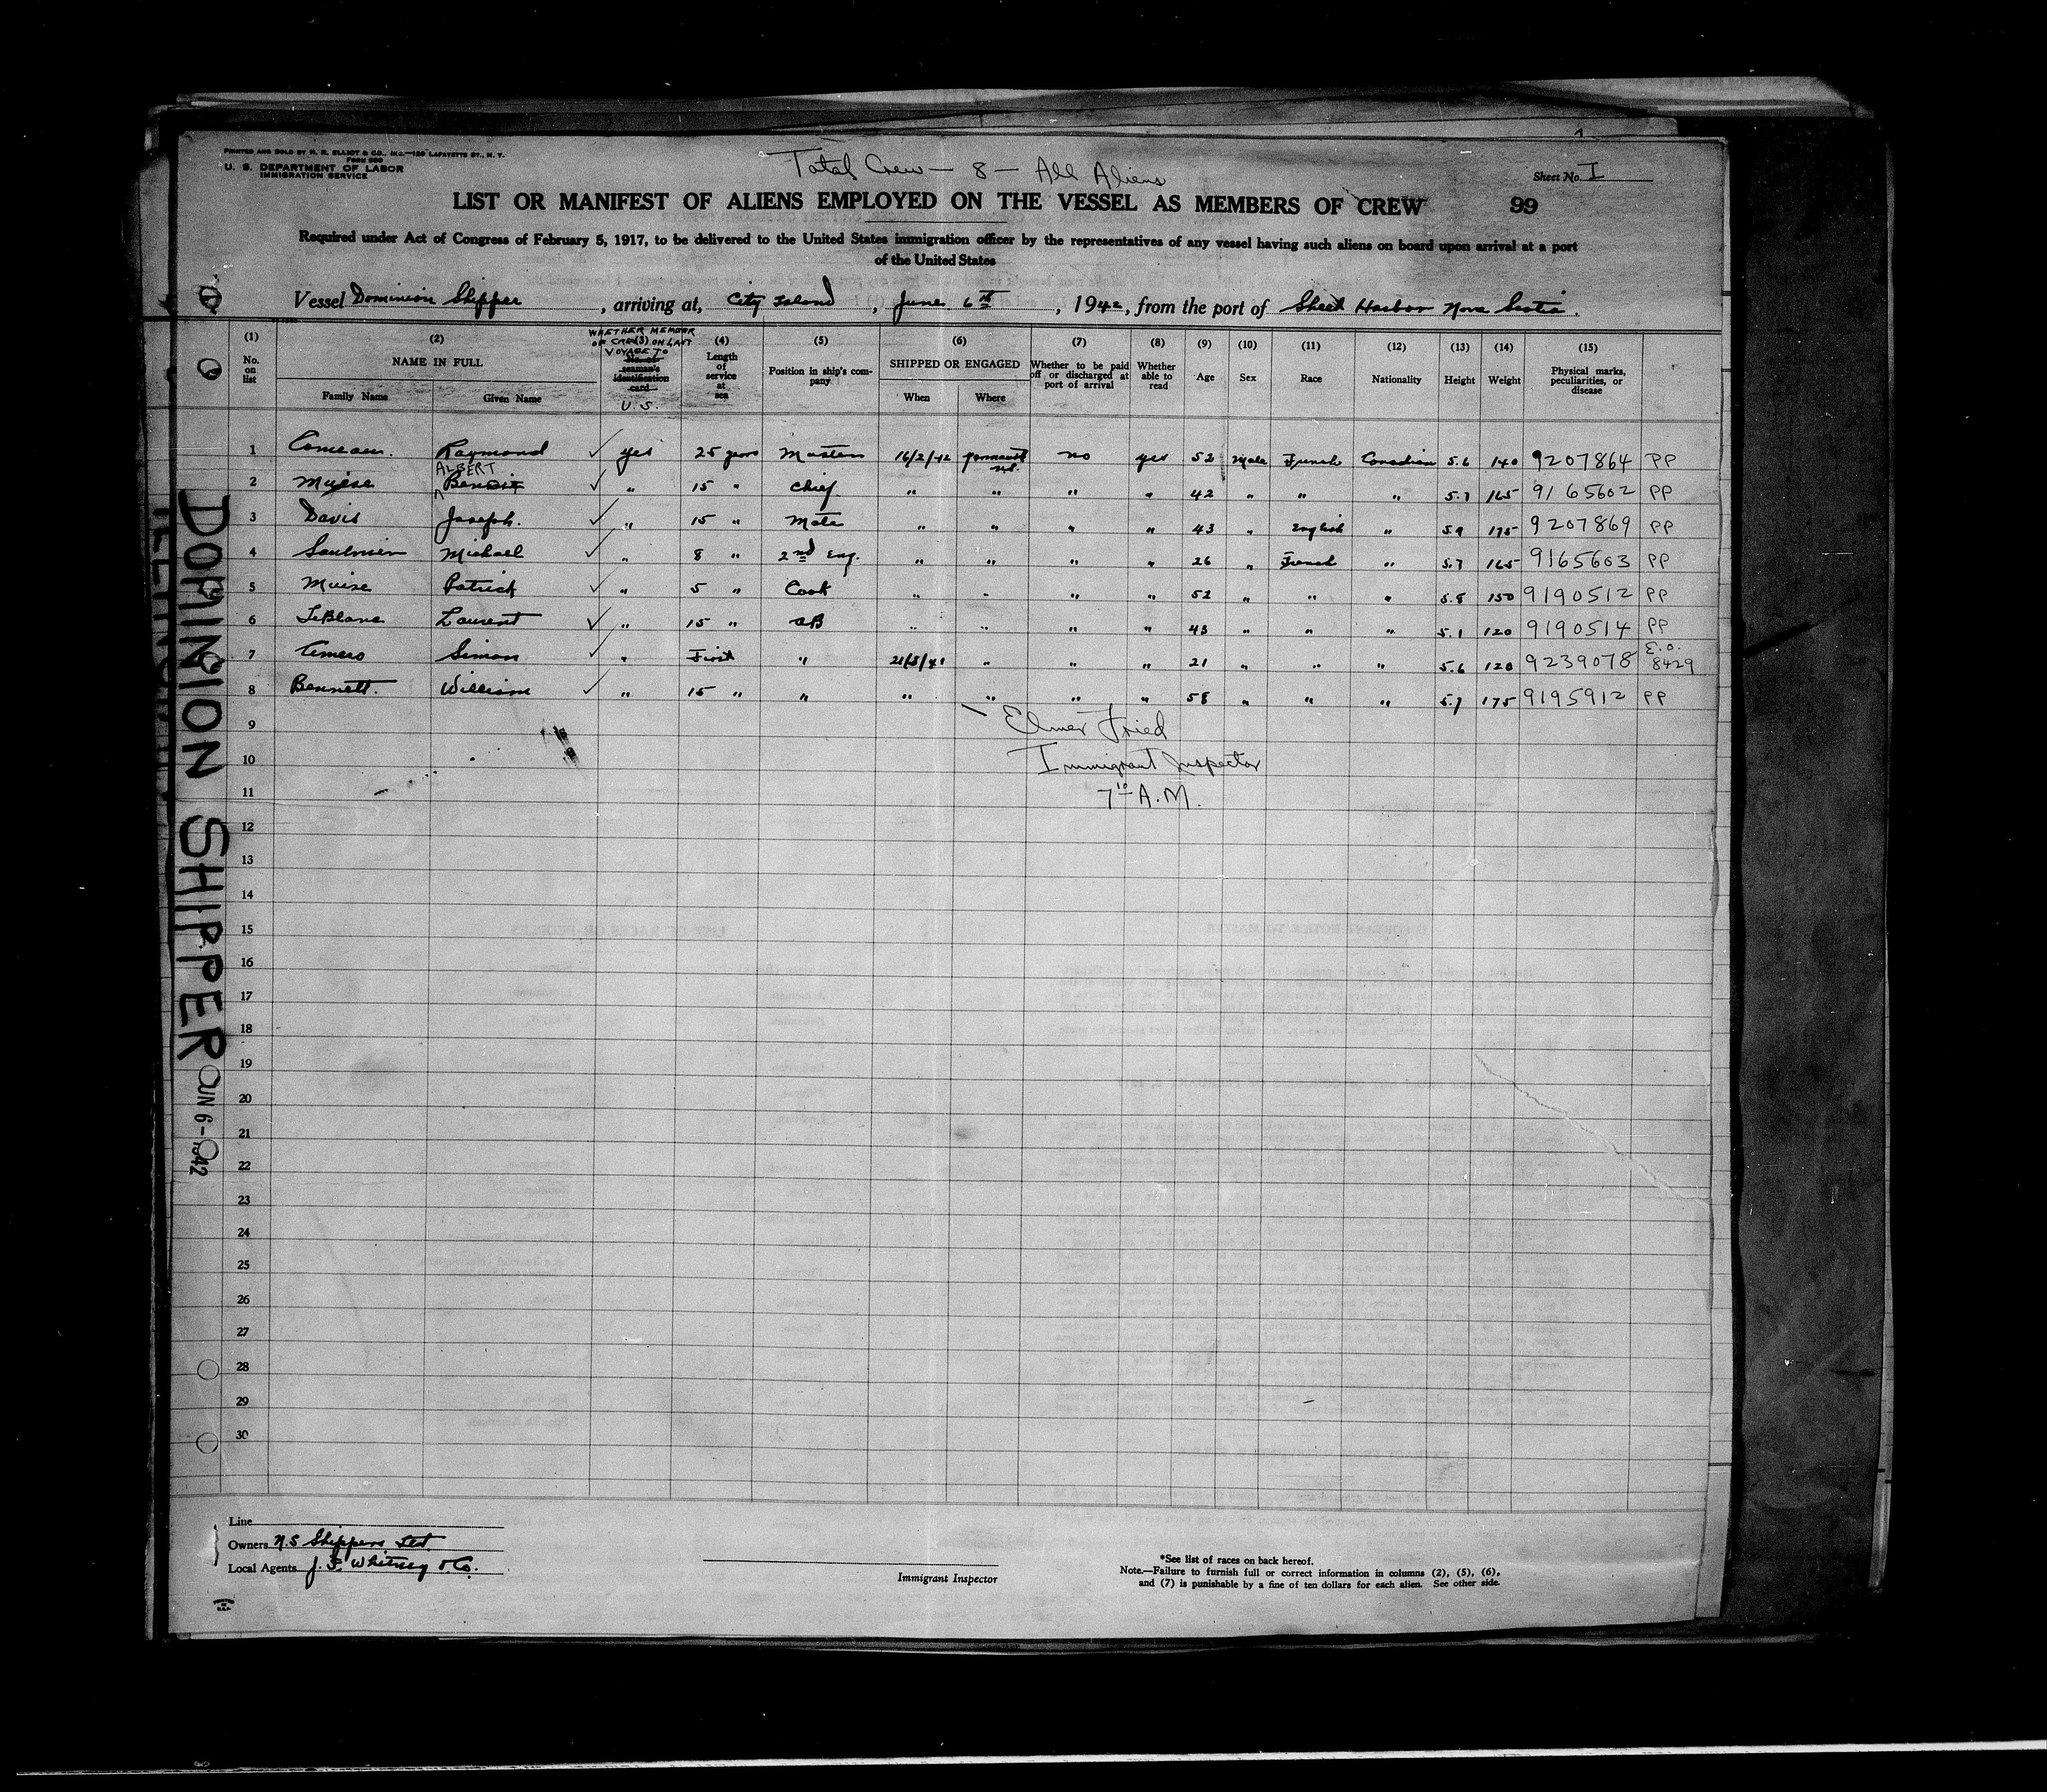 PRINTED AND SOLD BY H. R. ELLIOT & CO., INC.—129 LAFAYETTE ST., N. Y.
FORM 680
U. S. DEPARTMENT OF LABOR
IMMIGRATION SERVICE
Total Crew — 8 — All Aliens
Sheet No. I
LIST OR MANIFEST OF ALIENS EMPLOYED ON THE VESSEL AS MEMBERS OF CREW 99
Required under Act of Congress of February 5, 1917, to be delivered to the United States immigration officer by the representatives of any vessel having such aliens on board upon arrival at a port
of the United States
Vessel Dominion Shipper, arriving at, City Island, June 6th, 1942, from the port of Sheet Harbor Nova Scotia.
(1) No. on list (2) NAME IN FULL Family Name Given Name WHETHER MEMBER OF CREW (3) ON LAST VOYAGE TO No. of seaman's identification card U.S. (4) Length of service at sea (5) Position in ship's company (6) SHIPPED OR ENGAGED When Where (7) Whether to be paid off or discharged at port of arrival (8) Whether able to read (9) Age (10) Sex (11) Race (12) Nationality (13) Height (14) Weight (15) Physical marks, peculiarities, or disease
1 Comeau. Raymond ✓ yes 25 years Master 16/2/42 no yes 52 Male French Canadian 5.6 140 9207864 PP
ALBERT
2 Muise Benoit ✓ " 15 " Chief " " " " 42 " " " 5.7 165 9165602 PP
3 Davis Joseph. ✓ " 15 " Mate " " " " 43 " English " 5.9 175 9207869 PP
4 Saulnier Michael ✓ " 8 " 2nd Eng. " " " " 26 " French " 5.7 165 9165603 PP
5 Muise Patrick ✓ " 5 " Cook " " " " 52 " " " 5.8 150 9190512 PP
6 LeBlanc Laurent ✓ " 15 " AB " " " " 43 " " " 5.1 120 9190514 PP
7 Amero Simon ✓ " First " 21/5/41 " " " 21 " " " 5.6 120 9239078 E.O. 8429
8 Bennett. William ✓ " 15 " " " " " " 58 " " " 5.7 175 9195912 PP
9
Elmer Fried
10
Immigrant Inspector
11
7 10 A.M.
12
13
14
15
16
17
18
19
20
21
22
23
24
25
26
27
28
29
30
DOMINION SHIPPER JUN 6 - 1942
Line
Owners N.S Shippers Ltd.
Local Agents J. F. Whitney & Co.
Immigrant Inspector
*See list of races on back hereof.
Note.—Failure to furnish full or correct information in columns (2), (5), (6),
and (7) is punishable by a fine of ten dollars for each alien. See other side.
PRINTED IN U.S.A.